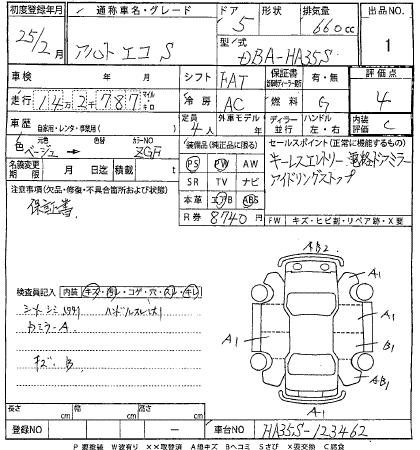 初度登録年月 通称車名・グレード ドア 形状 排気量 出品NO.
25/2月 アルト エコ S 5 660cc 1
型式 DBA-HA35S
車検 年 月 シフト FAT 保証書 有・無 評価点
走行 142787 マイル キロ 冷房 AC 燃料 G 4
車歴 自家用・レンタ・事業用( ) 定員 4人 外車モデル 年 ディーラー 並行 ハンドル 左・右 内装評価 C
色 元色 ベージュ → 色替 カラーNO ZGF
装備品(純正品に限る) セールスポイント(正常に機能するもの)
PS PW AW キーレスエントリー 電格ドアミラー
名義変更期限 月 日迄 積載 t SR TV ナビ アイドリングストップ
注意事項(欠品・修復・不具合箇所および状態) 本革 エアB ABS
保証書 R券 8740円 FW キズ・ヒビ割・リペア跡・X要
検査員記入 内装 キズ・汚レ・コゲ・穴・スレ・キレ
シート シミ ハンドルスレ
カミラーA
キズ B
AB2
A1
A1
A1
B1
A1
AB1
A1
長さ cm 幅 cm 高さ cm
登録NO ー 車台NO HA35S-123462
P 要塗装 W波有り XX取替済 A線キズ Bヘコミ Sさび X要交換 C腐食